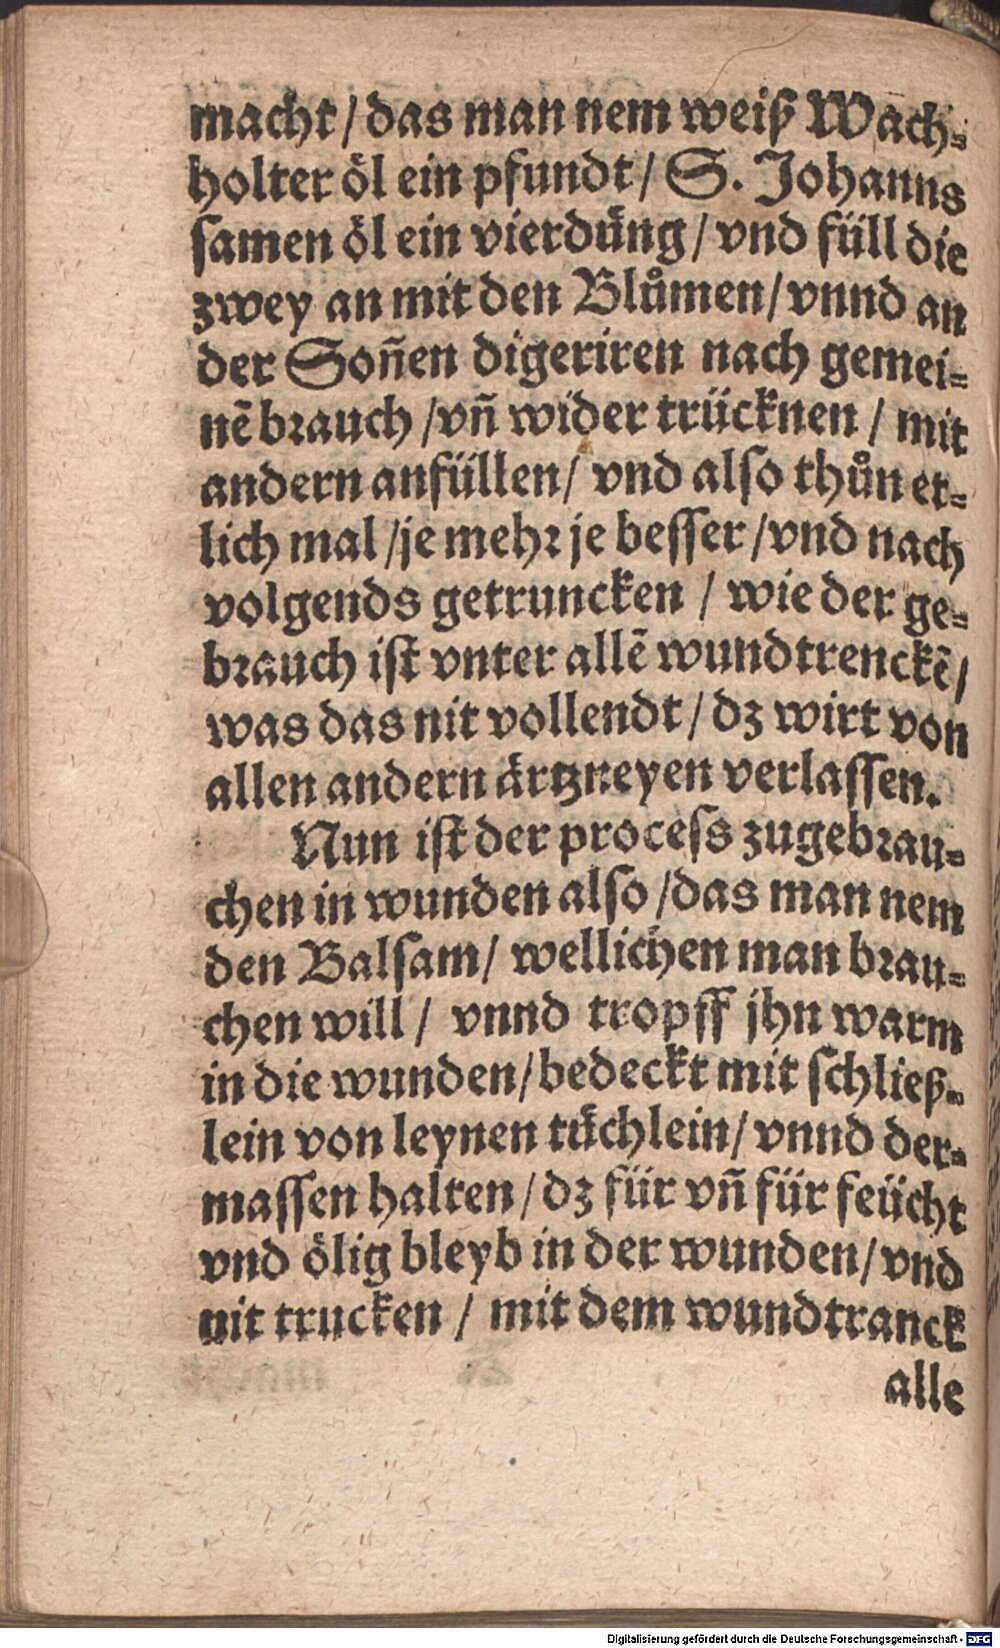 macht / das man nem weiß Wach⸗
holter öl ein pfundt / S. Johanns
samen öl ein vierdüng / vnd füll die
zwey an mit den Blůmen / vnnd an
der Soñen digeriren nach gemei⸗
nē brauch / vñ wider trücknen / mit
andern anfüllen / vnd also thůn et⸗
lich mal / je mehr je besser / vnd nach
volgends getruncken / wie der ge⸗
brauch ist vnter allē wundtrenckē /
was das nit vollendt / dz wirt von
allen andern ärtzneyen verlassen.
Nun ist der process zugebrau⸗
chen in wunden also / das man nem
den Balsam / wellichen man brau⸗
chen will / vnnd tropff jhn warm
in die wunden / bedeckt mit schließ⸗
lein von leynen tüchlein / vnnd der⸗
massen halten / dz für vñ für feücht
vnd ölig bleyb in der wunden / vnd
nit trucken / mit dem wundtranck
alle
Digitalisierung gefördert durch die Deutsche Forschungsgemeinschaft - DFG